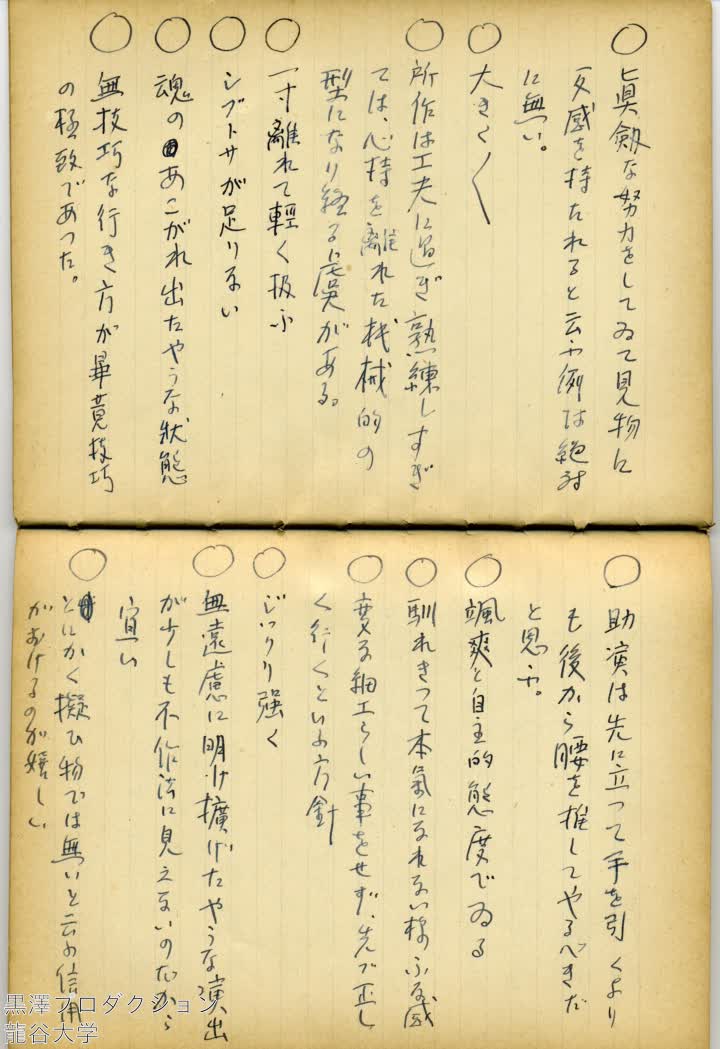 ○眞劔な努力をしてゐて見物に
反感を持たれると云ふ例は絶対
に無い。
○大きく〱
○所作は工夫に過ぎ熟練しすぎ
ては、心持を離れた機械的の
型になり経る虞がある。
○一寸離れて輕く扱ふ
○シブトサが足りない
○魂のあこがれ出たやうな狀態
○無技巧な行き方が畢竟技巧
の極致であつた。
○助演は先に立つて手を引くより
も後から腰を推してやるべきだ
と思ふ。
○颯爽と自主的態度でゐる
○馴れきつて本氣になれない様な感
○変な細工らしい事をせず、先づ正し
く行くといふ方針
○ジックリ強く
○無遠慮に明け擴げたやうな演出
が少しも不作法に見えないのだから
宜い
○とにかく擬ひ物では無いと云ふ信用
がおけるのが嬉しい
黒澤プロダクション
龍谷大学